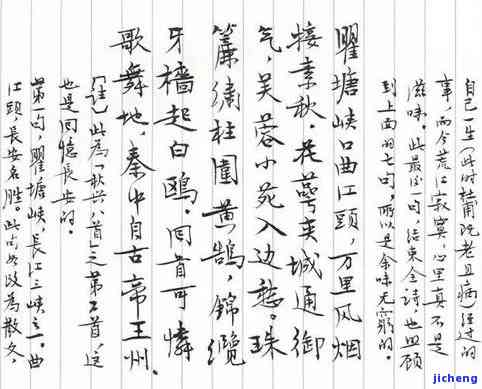 自己一生(此时杜甫既老且病)经过的
事,而今荒江寂寞,心里真不是
滋味。此最后一句,结束全诗,也回顾
到上面的七句,所以是余味无窮的。
瞿塘峡口曲江頭,万里风烟
接素秋。花萼夹城通御
气,芙蓉小苑入边愁。珠
簾绣柱圍黄鹄,锦纜
牙樯起白鸥。回首可憐
歌舞地,秦中自古帝王州。
〔注〕此为「秋兴八首」之第六首,这
也是回憶長安的。
第一句,瞿塘峡,長江三峡之一。曲
江頭,長安名胜。此句如改為散文,
jicheng